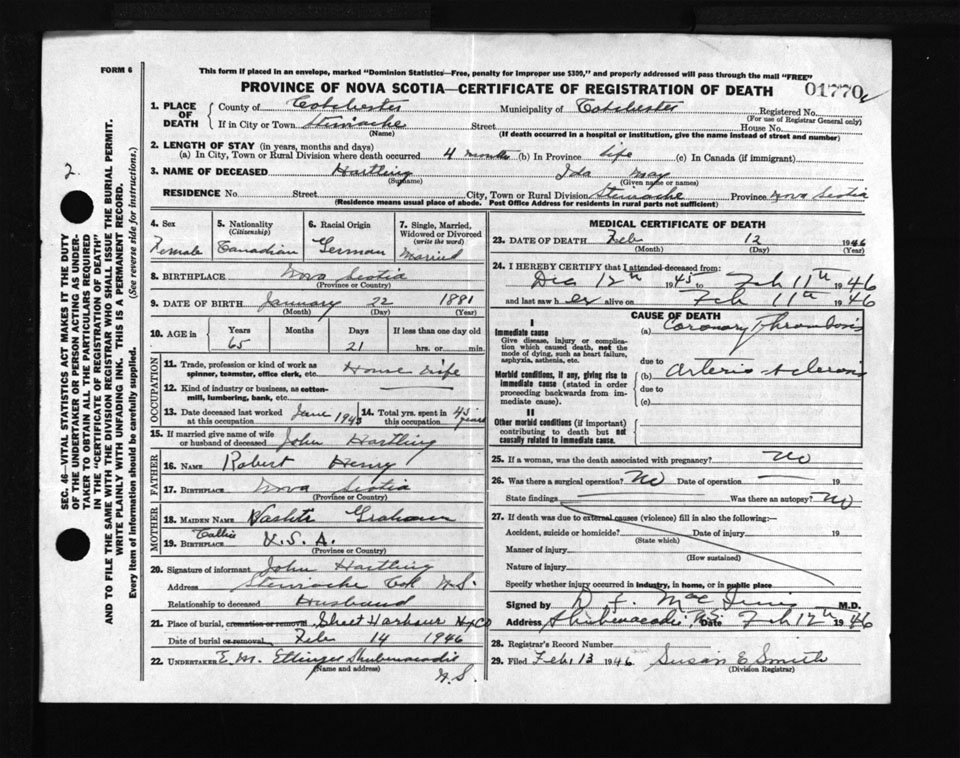 FORM 6
This form if placed in an envelope, marked "Dominion Statistics—Free, penalty for improper use $300," and properly addressed will pass through the mail "FREE"
PROVINCE OF NOVA SCOTIA—CERTIFICATE OF REGISTRATION OF DEATH 01770
1. PLACE OF DEATH
County of Colchester Municipality of Colchester Registered No.
(For use of Registrar General only)
If in City or Town Stewiacke Street House No.
(Name) (If death occurred in a hospital or institution, give the name instead of street and number)
2. LENGTH OF STAY (in years, months and days)
(a) In City, Town or Rural Division where death occurred 4 months (b) In Province life (c) In Canada (if immigrant)
3. NAME OF DECEASED Hartling Ida May
(Surname) (Given name or names)
RESIDENCE No. Street City, Town or Rural Division Stewiacke Province Nova Scotia
(Residence means usual place of abode. Post Office Address for residents in rural parts not sufficient)
4. Sex Female
5. Nationality (Citizenship) Canadian
6. Racial Origin German
7. Single, Married, Widowed or Divorced (write the word) Married
8. BIRTHPLACE Nova Scotia
(Province or Country)
9. DATE OF BIRTH January 22 1881
(Month) (Day) (Year)
10. AGE in Years Months Days If less than one day old
65 21 hrs. or min.
OCCUPATION
11. Trade, profession or kind of work as spinner, teamster, office clerk, etc. House wife
12. Kind of industry or business, as cotton-mill, lumbering, bank, etc.
13. Date deceased last worked at this occupation June 1945
14. Total yrs. spent in this occupation 45 years
15. If married give name of wife or husband of deceased John Hartling
FATHER
16. NAME Robert Henry
17. BIRTHPLACE Nova Scotia
(Province or Country)
MOTHER
18. MAIDEN NAME Graham
19. BIRTHPLACE U.S.A.
(Province or Country)
20. Signature of informant John Hartling
Address Stewiacke Col N.S.
Relationship to deceased Husband
21. Place of burial, cremation or removal Sheet Harbour Hx Co
Date of burial or removal Feb 14 1946
22. UNDERTAKER E. M. Ettinger Shubenacadie
(Name and address) N.S.
MEDICAL CERTIFICATE OF DEATH
23. DATE OF DEATH Feb 12 1946
(Month) (Day) (Year)
24. I HEREBY CERTIFY that I attended deceased from:
Dec 12th 1945 to Feb 11th 1946
and last saw her alive on Feb 11th 1946
CAUSE OF DEATH
I
Immediate cause (a) Coronary Thrombosis
Give disease, injury or complication which caused death, not the mode of dying, such as heart failure, asphyxia, asthenia, etc.
due to
Morbid conditions, if any, giving rise to immediate cause (stated in order proceeding backwards from immediate cause).
(b) Arterio sclerosis
due to
(c)
II
Other morbid conditions (if important) contributing to death but not causally related to immediate cause.
25. If a woman, was the death associated with pregnancy? No
26. Was there a surgical operation? No Date of operation 19
State findings Was there an autopsy? No
27. If death was due to external causes (violence) fill in also the following:—
Accident, suicide or homicide? Date of injury 19
(State which)
Manner of injury
(How sustained)
Nature of injury
Specify whether injury occurred in industry, in home, or in public place
Signed by D. F. M.D.
Address Shubenacadie, N.S. Date Feb 12th 1946
28. Registrar's Record Number
29. Filed Feb. 13 1946 Susan E Smith
(Division Registrar)
2.
SEC. 46—VITAL STATISTICS ACT MAKES IT THE DUTY OF THE UNDERTAKER OR PERSON ACTING AS UNDERTAKER TO OBTAIN ALL THE PARTICULARS REQUIRED IN THE "CERTIFICATE OF REGISTRATION OF DEATH" AND TO FILE THE SAME WITH THE DIVISION REGISTRAR WHO SHALL ISSUE THE BURIAL PERMIT.
WRITE PLAINLY WITH UNFADING INK. THIS IS A PERMANENT RECORD.
Every item of information should be carefully supplied. (See reverse side for instructions.)